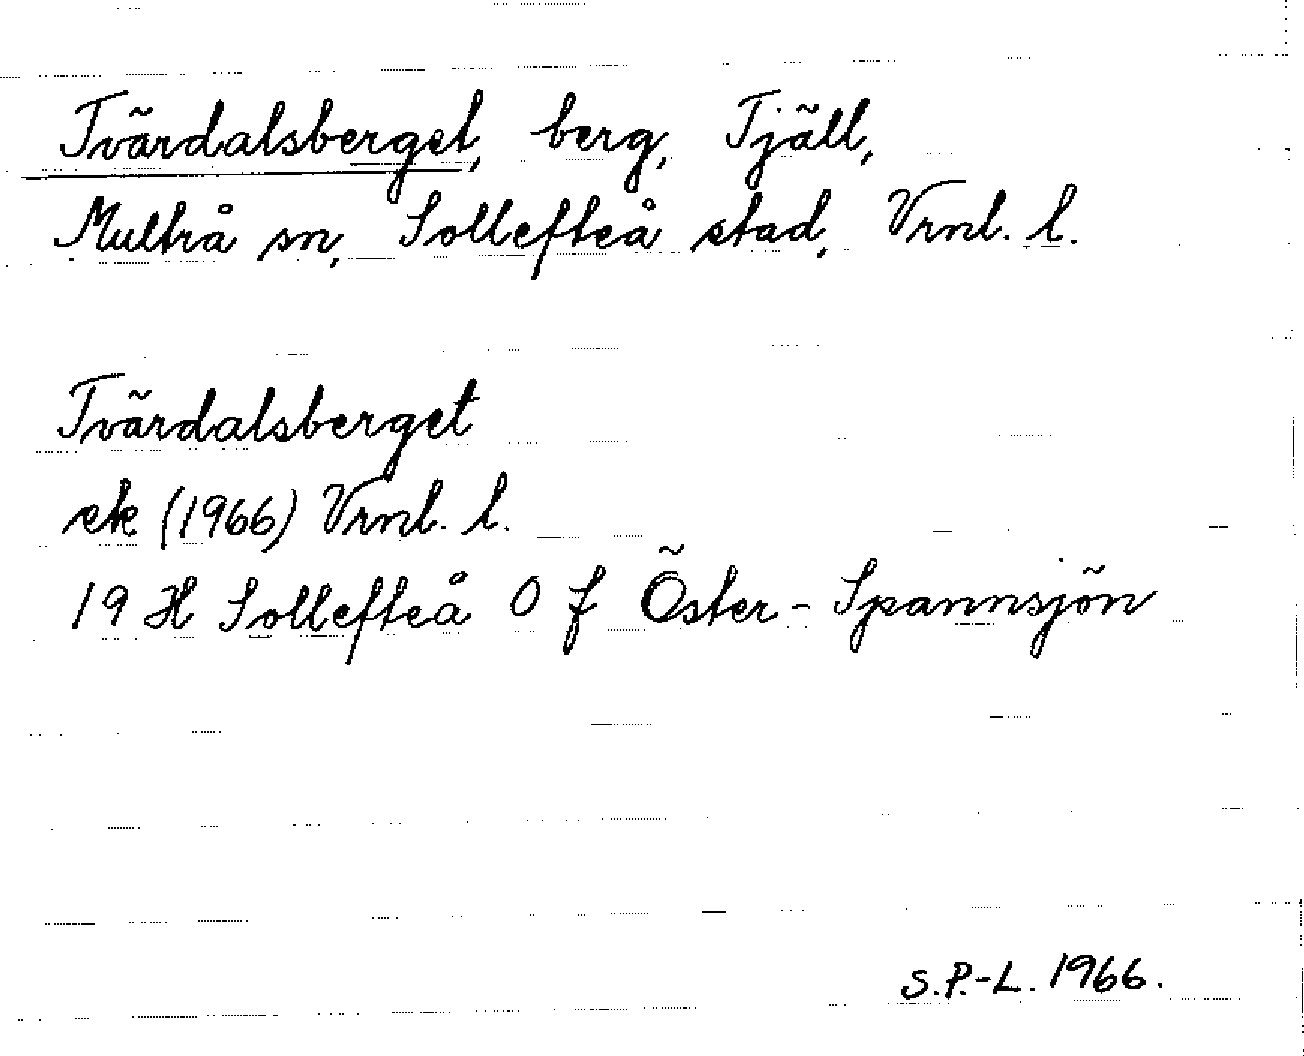 Tvärdalsberget, berg, Tjäll,
Multrå sn, Sollefteå stad, Vrnl. l.
Tvärdalsberget
ek (1966) Vrnl. l.
19 H Sollefteå O f Öster-Spannsjön
S.P.-L. 1966.